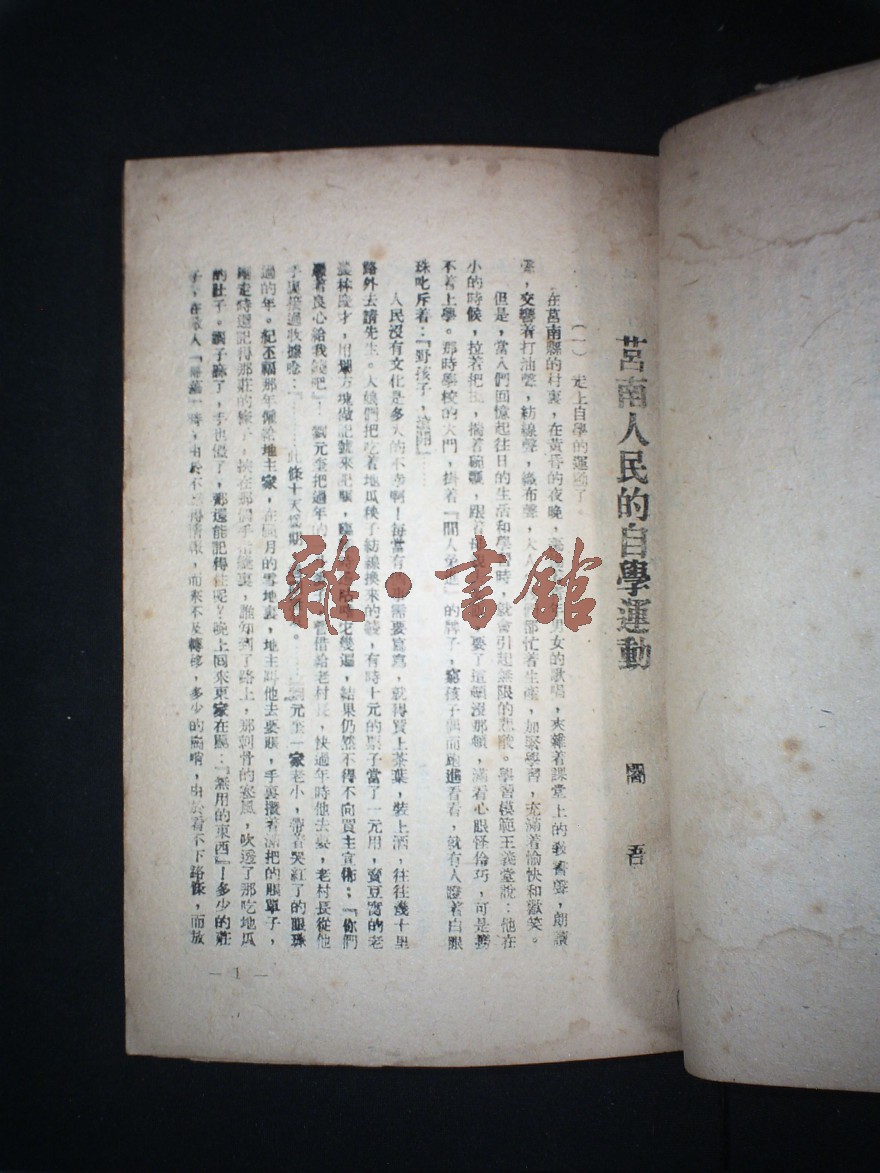 莒南人民的自學運動
閣吾
(一) 走上自學的運動了。
在莒南縣的村裏,在黃昏的夜晚,男女的歌唱,夾雜着課堂上的教書聲,朗讀
聲,交響着打油聲,紡線聲,織布聲,大人都忙着生產,加緊學習,充滿着愉快和歡笑。
但是,當人們回憶起往日的生活和學習時,就會引起無限的悲酸。學習模範王義堂說:他在
小的時候,拉着把棍,揣着碗瓢,跟着要了這頓沒那頓,滿看心眼怪伶巧,可是撈
不着上學。那時學校的大門,掛着『閒人免進』的牌子,窮孩子偶而跑進看看,就有人瞪着白眼
珠叱斥着:『野孩子,滾開』……
人民沒有文化是多大的不幸啊!每當有需要寫寫,就得買上茶葉,裝上酒,往往幾十里
路外去請先生。大娘們把吃着地瓜秧子紡線換來的錢,有時十元的票子當了一元用,賣豆窩的老
姜林慶才,用塊方塊做記號來記賬,幾遍,結果仍然不得不向買主宣佈:『你們
憑着良心給我錢吧』!劉元奎把過年的借給老村長,快過年時他去要,老村長從他
手裏接過收據唸:『……此條十天為期……』劉元奎一家老小,帶着哭紅了的眼珠
過的年。紀丕福那年傭給地主家,在臘月的雪地裏,地主叫他去要賬,手裏攥着滿把的賬單子,
剛走時還記得那莊的條子,挾在那個手指縫裏,誰知到了路上,那刺骨的寒風,吹透了那吃地瓜
的肚子。調子聽了,手也溢了,那還能記得住呢?晚上回來東家在罵:『無用的東西』!多少的莊
子,在敵人『掃蕩』時,由於不得情報,而來不及轉移,多少的崗哨,由於看不下路條,而放
— 1 —
雜·書館